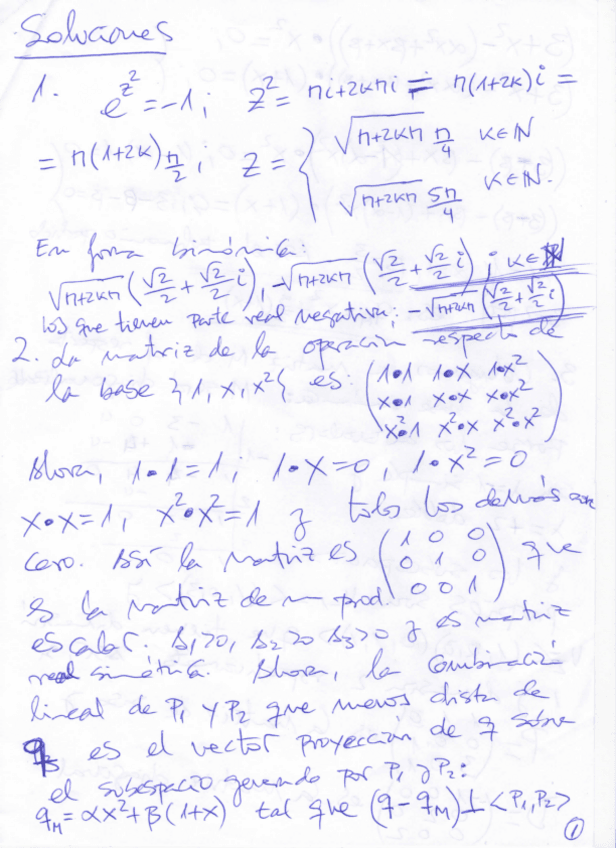 Soluciones
1. e^{z^2} = -1; z^2 = πi+2kπi = π(1+2k)i =
= π(1+2k)_{π/2}; z = { √(π+2kπ) π/4 k∈N
√(π+2kπ) 5π/4 k∈N.
En forma binómica:
√(π+2kπ) (√2/2 + √2/2 i), -√(π+2kπ) (√2/2 + √2/2 i); k∈N
los que tienen parte real negativa: -√(π+2kπ) (√2/2 + √2/2 i)
2. La matriz de la operación respecto de
la base {1, x, x²} es: (1•1 1•x 1•x²
x•1 x•x x•x²
x²•1 x²•x x²•x²)
Ahora, 1•1=1, 1•x=0, 1•x²=0
x•x=1, x²•x²=1 y todos los demás son
cero. Así la matriz es (1 0 0
0 1 0
0 0 1) que
es la matriz de un prod.
escalar. Δ₁>0, Δ₂>0 Δ₃>0 y es matriz
real simétrica. Ahora, la combinación
lineal de P₁ y P₂ que menos dista de
q es el vector proyección de q sobre
el subespacio generado por P₁ y P₂:
q_M = αx²+β(1+x) tal que (q-q_M)⊥<P₁,P₂>
1